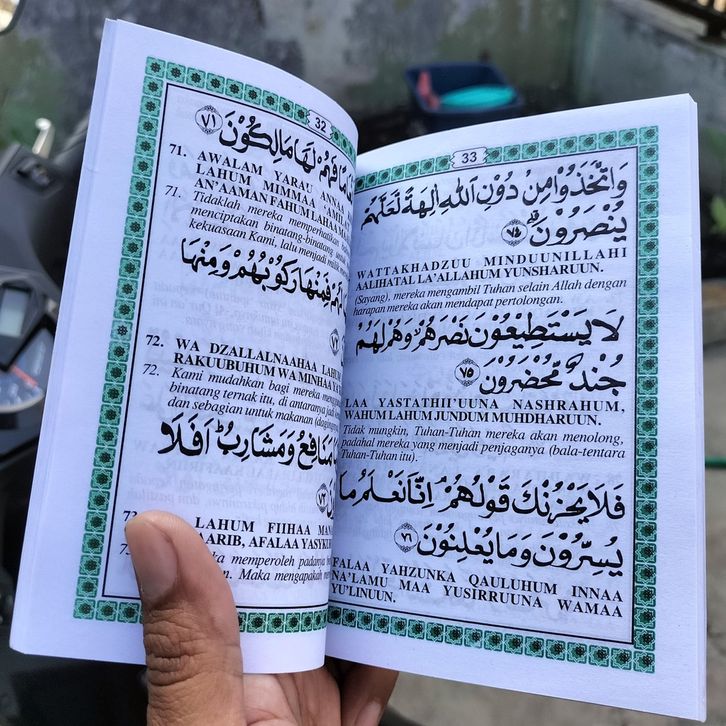 32
فَهُمْ لَهَا مَالِكُوْنَ ٧١
71. AWALAM YARAU ANNA
LAHUM MIMMAA
AN'AAMAN FAHUM LAHAA
71. Tidaklah mereka memperhatikan
menciptakan binatang-binatang
kekuasaan Kami, lalu menjadi
فَمِنْهَا رَكُوْبُهُمْ وَمِنْهَا
72. WA DZALLALNAAHAA LAHUM
RAKUUBUHUM WA MINHAA
72. Kami mudahkan bagi mereka
binatang ternak itu, di antaranya jadi
dan sebagian untuk makanan
مَنَافِعُ وَمَشَارِبُ اَفَلَا
٧٣
LAHUM FIIHAA
AARIB, AFALAA
memperoleh padanya
Maka mengapakah
33
وَاتَّخَذُوْا مِنْ دُوْنِ اللّٰهِ اٰلِهَةً لَعَلَّهُمْ
يُنْصَرُوْنَ ٧٥
WATTAKHADZUU MINDUUNILLAHI
AALIHATAL LA'ALLAHUM YUNSHARUUN.
(Sayang), mereka mengambil Tuhan selain Allah dengan
harapan mereka akan mendapat pertolongan.
لَا يَسْتَطِيْعُوْنَ نَصْرَهُمْ وَهُمْ لَهُمْ
جُنْدٌ مُحْضَرُوْنَ ٧٥
LAA YASTATHII'UUNA NASHRAHUM,
WAHUM LAHUM JUNDUM MUHDHARUUN.
Tidak mungkin, Tuhan-Tuhan mereka akan menolong,
padahal mereka yang menjadi penjaganya (bala-tentara
Tuhan-Tuhan itu).
فَلَا يَحْزُنْكَ قَوْلُهُمْ اِنَّا نَعْلَمُ مَا
يُسِرُّوْنَ وَمَا يُعْلِنُوْنَ ٧٦
FALAA YAHZUNKA QAULUHUM INNAA
NA'LAMU MAA YUSIRRUUNA WAMAA
YU'LINUUN.